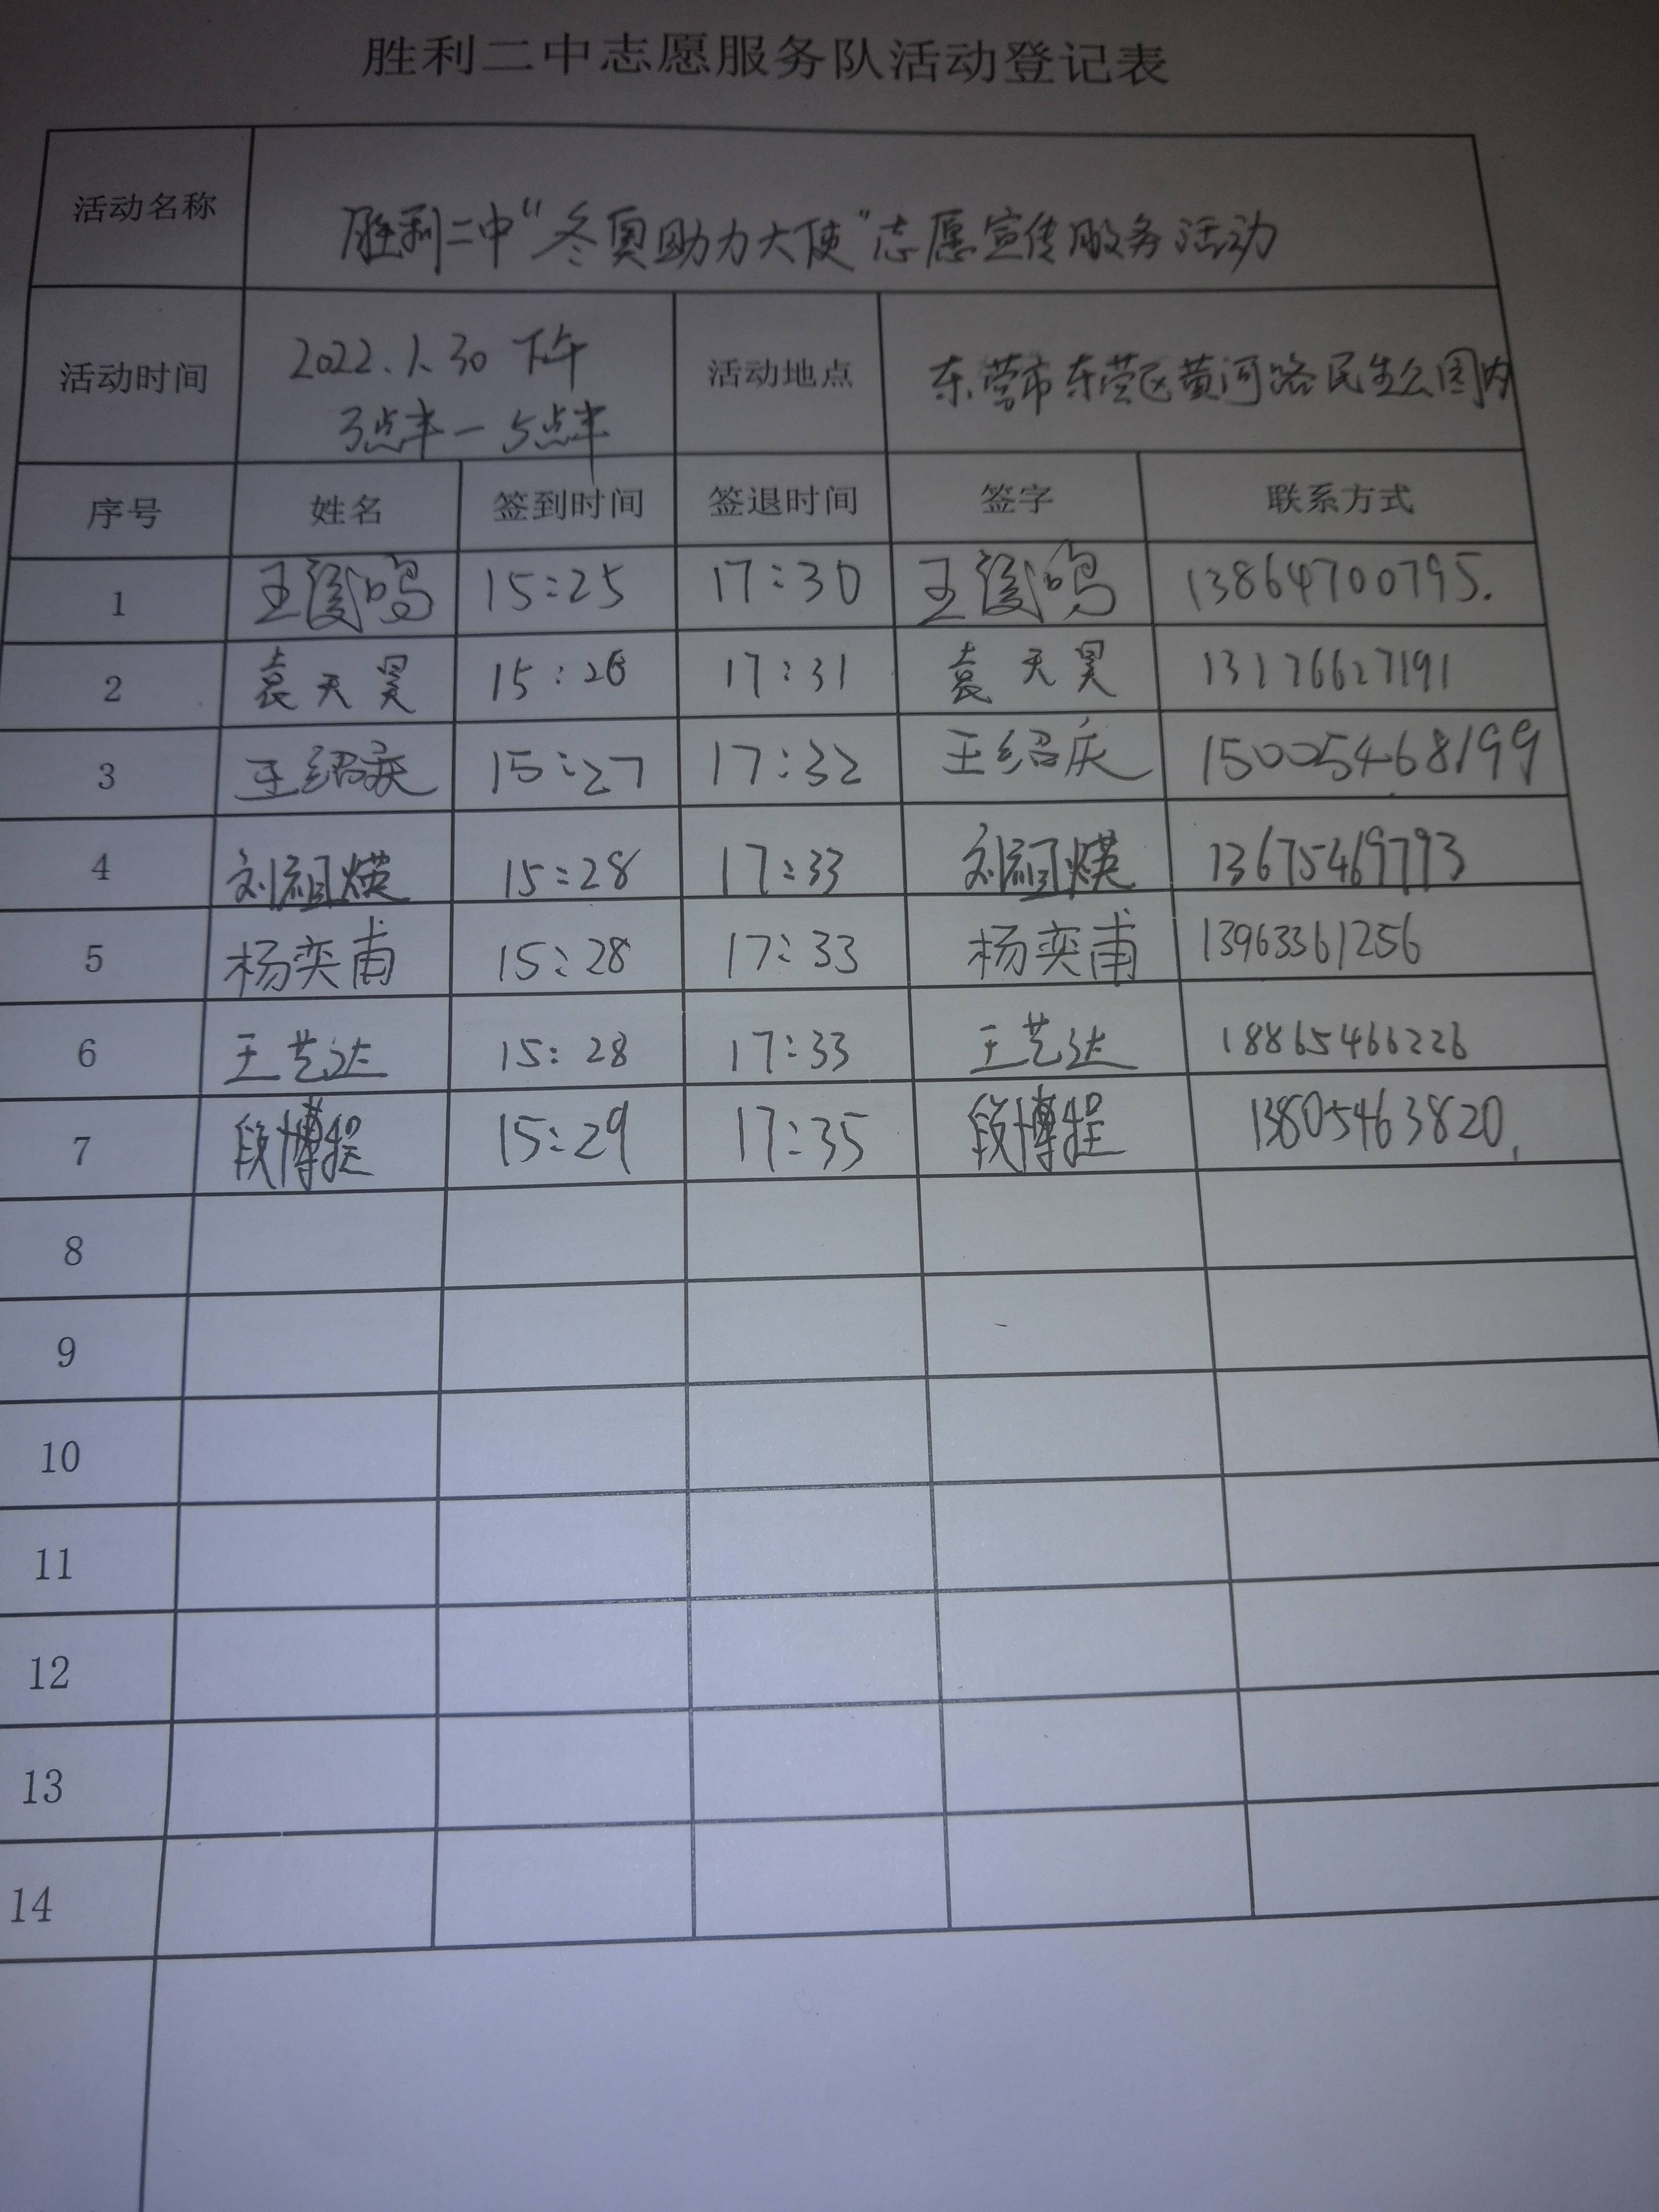 胜利二中志愿服务队活动登记表
活动名称 胜利二中“冬奥助力大使”志愿宣传服务活动
活动时间 2022.1.30 下午 3点半－5点半 活动地点 东营市东营区黄河路民生公园内
序号 姓名 签到时间 签退时间 签字 联系方式
1 王浚鸣 15:25 17:30 王浚鸣 13864700795.
2 袁天昊 15:26 17:31 袁天昊 13176627191
3 王绍庆 15:27 17:32 王绍庆 15005468199
4 刘祖煐 15:28 17:33 刘祖煐 13675469793
5 杨奕甫 15:28 17:33 杨奕甫 13963361256
6 王艺达 15:28 17:33 王艺达 18865466226
7 段博程 15:29 17:35 段博程 13805463820.
8
9
10
11
12
13
14